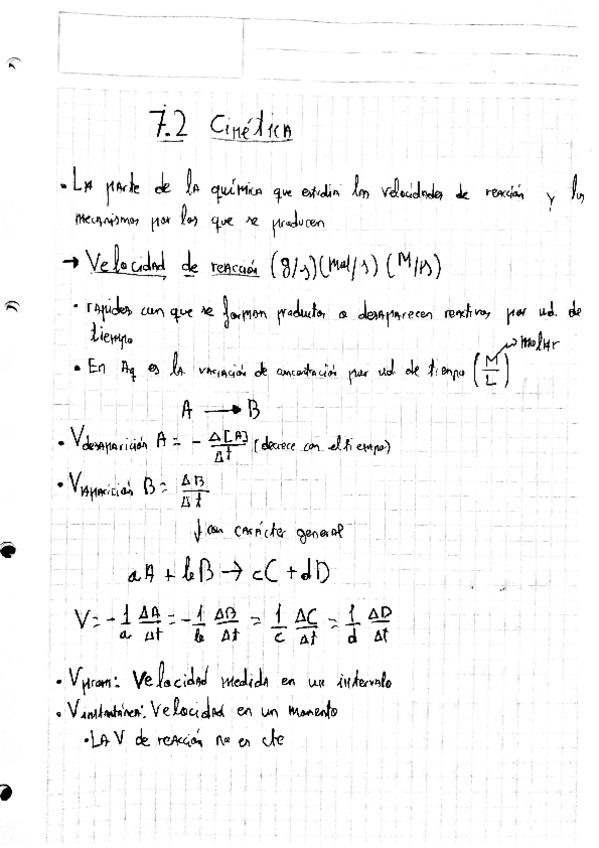 7.2 Cinética
• La parte de la química que estudia las velocidades de reacción y los
mecanismos por los que se producen
→ Velocidad de reacción (g/s)(mol/s) (M/s)
• rapidez con que se forman productos o desaparecen reactivos por ud. de
tiempo
→ molar
• En Aq es la variación de concentración por ud. de tiempo (M/L)
A → B
• Vdesaparición A = - Δ[A]/Δt (decrece con el tiempo)
• Vaparición B = ΔB/Δt
↓ con carácter general
aA + bB → cC + dD
V = - 1/a ΔA/Δt = - 1/b ΔB/Δt = 1/c ΔC/Δt = 1/d ΔD/Δt
• Vprom: Velocidad medida en un intervalo
• Vinstantánea: Velocidad en un momento
• LA V de reacción no es cte